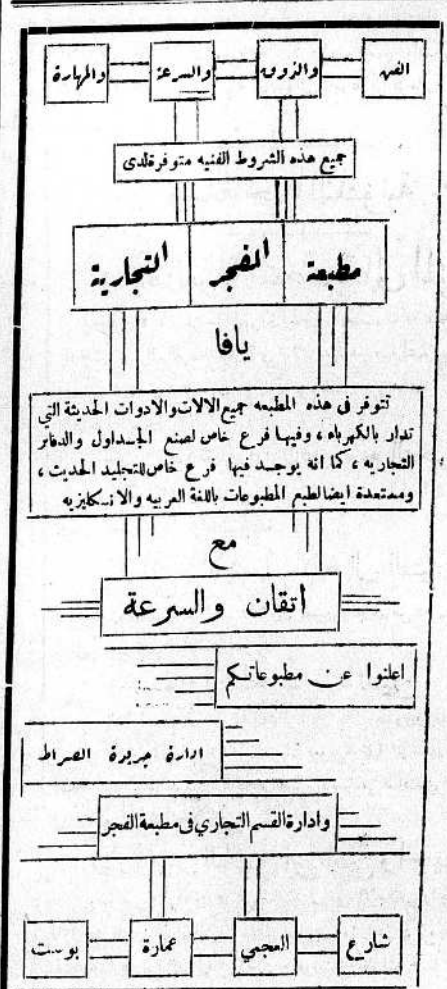 الفن والذوق والسرعة والمهارة
جميع هذه الشروط الفنيه متوفرة لدى
مطبعة الفجر التجارية
يافا
تتوفر فى هذه المطبعه جميع الالات والادوات الحديثة التي
تدار بالكهرباء ، وفيها فرع خاص لصنع الجداول والدفاتر
التجاريه ، كما انه يوجد فيها فرع خاص للتجليد الحديث ،
ومستعدة ايضا لطبع المطبوعات باللغة العربيه والانكليزيه
مع
أتقان والسرعة
اعلنوا عن مطبوعاتكم
ادارة جريدة الصراط
وأدارة القسم التجاري فى مطبعة الفجر
شارع العجمي عمارة بوست